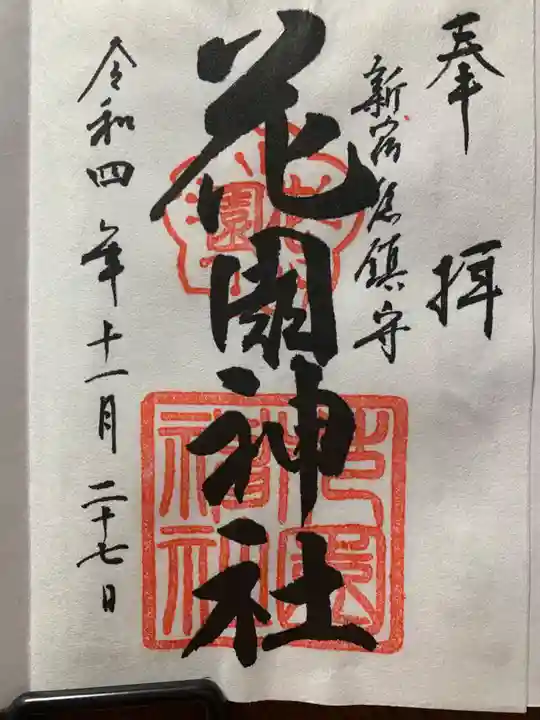 奉拝
新宿總鎮守
花園神社
令和四年十一月二十七日
花園神社